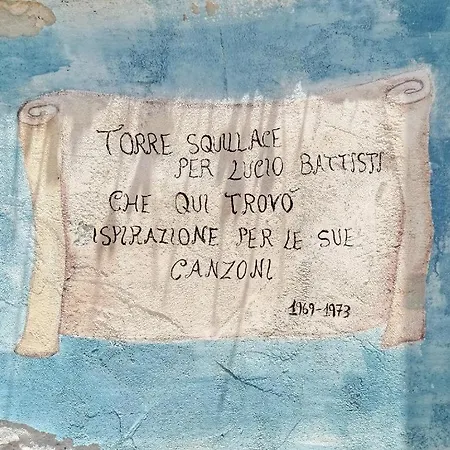 TORRE SQUILLACE
PER LUCIO BATTISTI
CHE QUI TROVÒ
ISPIRAZIONE PER LE SUE
CANZONI
1969-1973